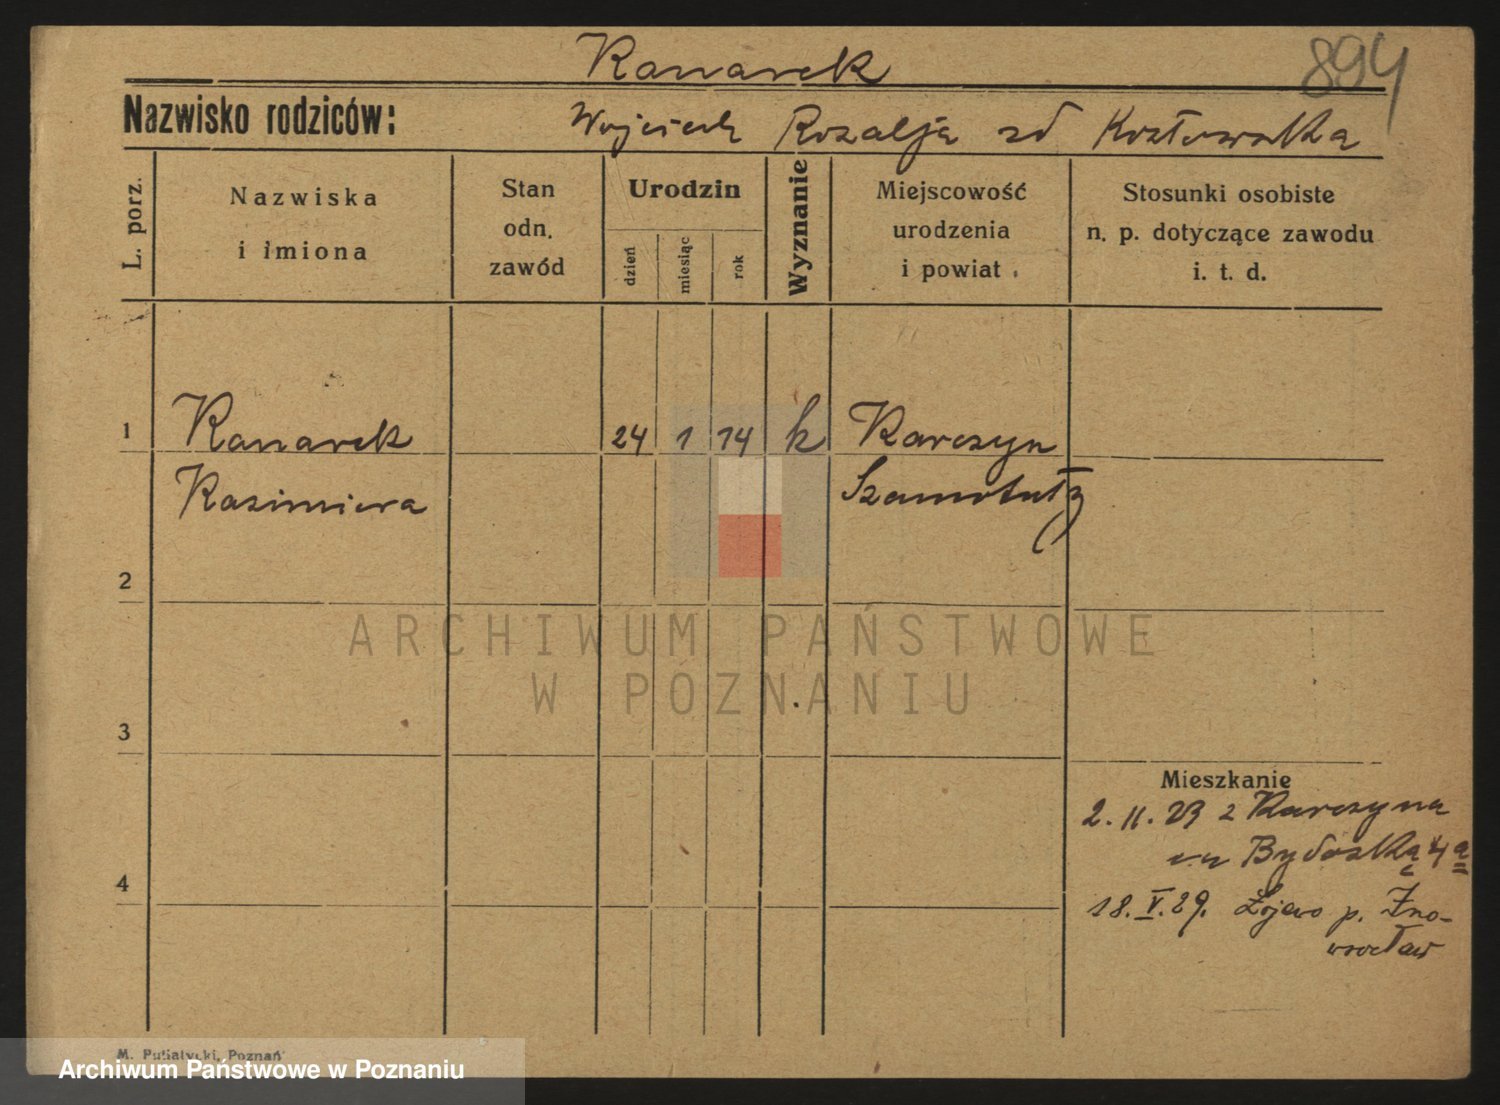 Kanarek
894
Nazwisko rodziców:
Wojciech Rozalja zd Kozłowska
L. porz.
Nazwiska
i imiona
Stan
odn.
zawód
Urodzin
dzień
miesiąc
rok
Wyznanie
Miejscowość
urodzenia
i powiat
Stosunki osobiste
n. p. dotyczące zawodu
i. t. d.
1
Kanarek
24 1 14 k Karczyn
Kazimiera
Szamotuły
2
ARCHIWUM PAŃSTWOWE
W POZNANIU
3
Mieszkanie
2. 11. 23 z Karczyna
Bydoską 4a
4
18. V. 29. Łojewo p. Ino-
wrocław
M. Putiatycki, Poznań
Archiwum Państwowe w Poznaniu